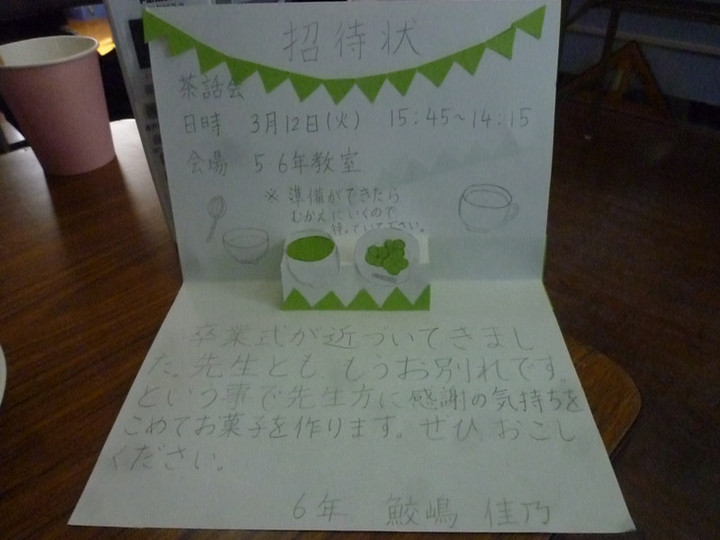 招待状
茶話会
日時 3月12日(火) 15:45~14:15
会場 5 6年教室
※ 準備ができたら
むかえにいくので
待っていて下さい。
卒業式が近づいてきまし
た。先生とも もうお別れです。
という事で先生方に感謝の気持ちを
こめてお菓子を作ります。ぜひ おこし
ください。
6年 鮫嶋 佳乃